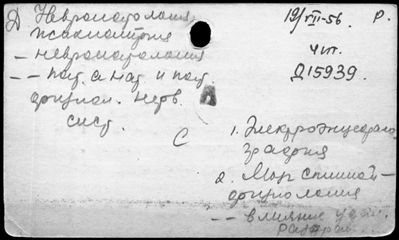 Д Невропатология
психиатрия
– невропатология
– – пат. анат и пат.
физиол. нерв.
сист.
19/VII-56. Р.
Чит.
Д15939.
С
1. Электроэнцефало
графия
2. Мозг спинной –
физиология
– – влияние удал.